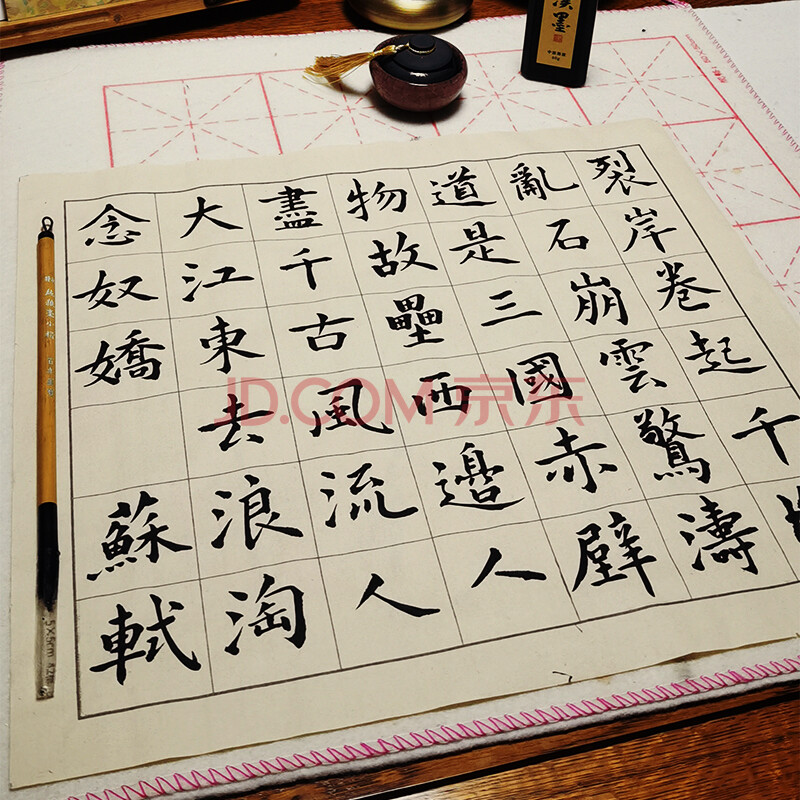 念奴嬌 蘇軾
大江東去浪淘
盡千古風流人
物故壘西邊人
道是三國赤壁
亂石崩雲驚濤
裂岸卷起千
JD.COM 京东
墨
5×5cm